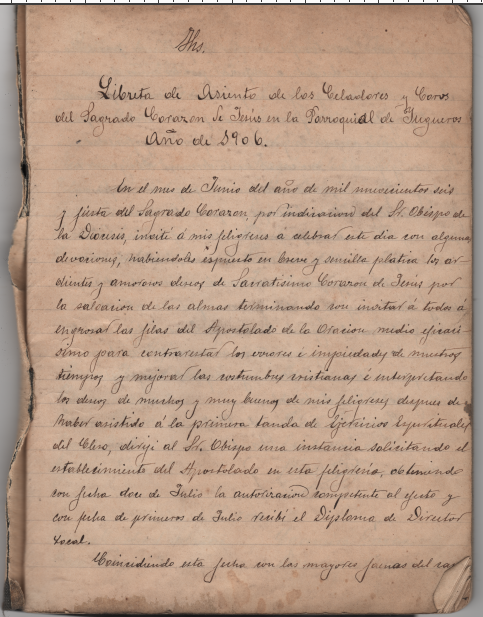 Jhs.
Libreta de Asiento de los Celadores y Coros
del Sagrado Corazon de Jesús en la Parroquial de Jugueros
Año de 1906.
En el mes de Junio del año de mil nuevecientos seis
y fiesta del Sagrado Corazon, por indicacion del Sr. Obispo de
la Diócesis, invité á mis feligreses á celebrar este dia con algunas
devociones, habiendoles espuesto en breve y sencilla platica los ar-
dientes y amorosos deseos de Sacratisimo Corazon de Jesús por
la salvacion de las almas terminando con invitar á todos á
engrosar las filas del Apostolado de la Oracion medio eficaci-
simo para contrarestar los errores é impiedades de muchos
tiempos y mejorar las costumbres cristianas é interpretando
los deseos de muchos y muy buenos de mis feligreses despues de
haber asistido á la primera tanda de Ejercicios Espirituales
del Clero, dirijí al Sr. Obispo una instancia solicitando el
establecimiento del Apostolado en esta feligresia, obteniendo
con fecha doce de Julio la autorizacion competente al efecto y
con fecha de primeros de Julio recibí el Diploma de Director
Local.
Coincidiendo esta fecha con las mayores faenas del